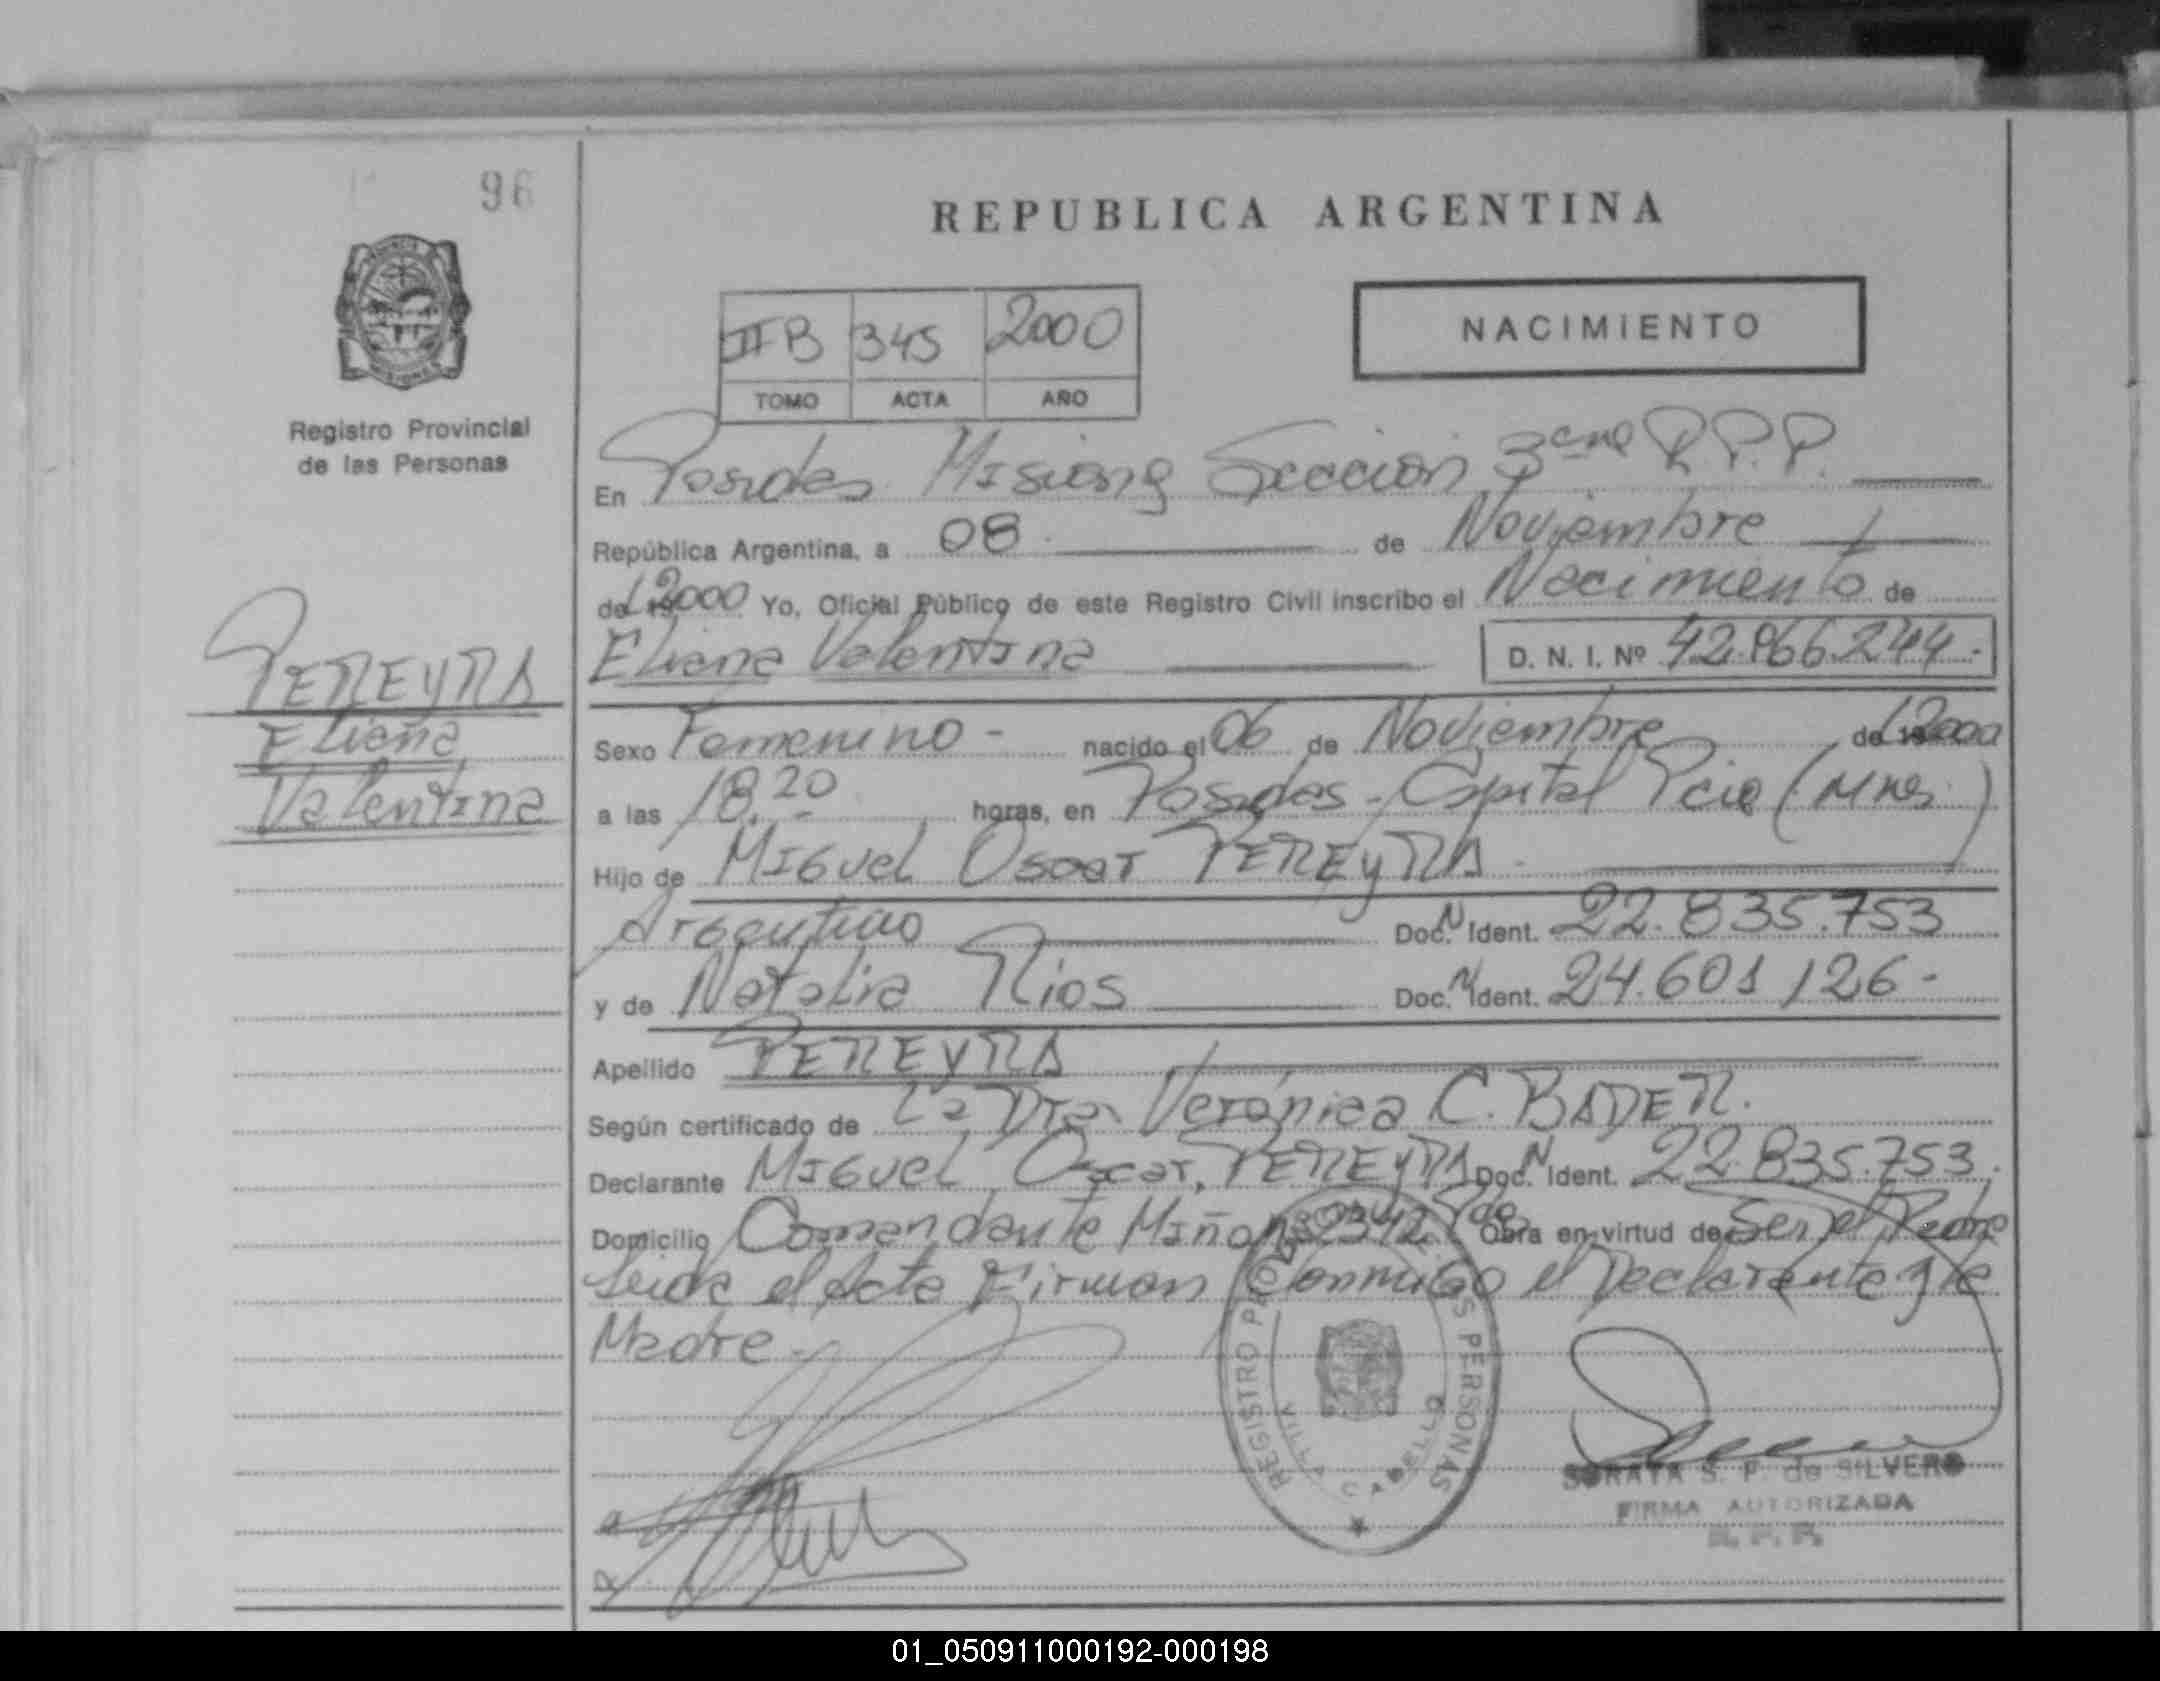 96
REPUBLICA ARGENTINA
NACIMIENTO
II B 345 2000
TOMO ACTA AÑO
Registro Provincial
de las Personas
En Posadas Misiones Sección 3era R.P.P.
República Argentina, a 08 de Noviembre
de 2000 Yo, Oficial Público de este Registro Civil inscribo el Nacimiento de
Eliana Valentina D. N. I. Nº 42.866.244.-
PEREYRA
Eliana
Valentina
Sexo Femenino - nacido el 06 de Noviembre de 2000
a las 18.20 horas, en Posadas - Capital Pcia (Mnes.)
Hijo de Miguel Oscar PEREYRA
Argentino Doc. N Ident. 22.835.753
y de Natalia Rios Doc. N Ident. 24.601.126-
Apellido PEREYRA
Según certificado de La Dra. Verónica C. BADER.
Declarante Miguel Oscar PEREYRA Doc. N Ident. 22.835.753.
Domicilio Comandante Miño 2342 Pdas Obra en virtud de Ser el Padre
Leida el Acta Firman Conmigo el Declarante y la
Madre.-
REGISTRO PROVINCIAL DE LAS PERSONAS
CABELLO
SORAYA S. F. de SILVERO
FIRMA AUTORIZADA
R. P. P.
01_050911000192-000198